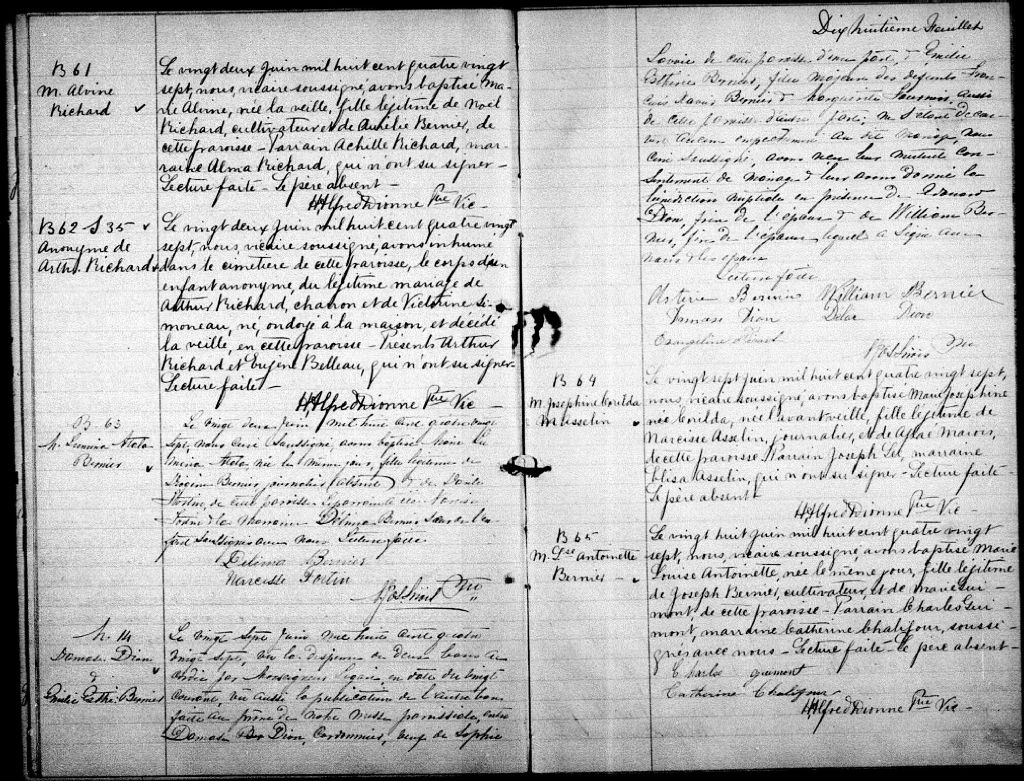 B 61
M. Alvine
Richard
Le vingt deux Juin mil huit cent quatre vingt
sept, nous, vicaire soussigné, avons baptisé Ma-
rie Alvine, née la veille, fille légitime de Noël
Richard, cultivateur et de Aurélie Bernier, de
cette paroisse - Parrain Achille Richard, mar-
raine Alma Richard, qui n'ont su signer -
Lecture faite - Le père absent -
H Alfred Dionne Ptre Vic -
B 62 - S 35
Anonyme de
Arth. Richard
Le vingt deux Juin mil huit cent quatre vingt
sept, nous, vicaire soussigné, avons inhumé
dans le cimetière de cette paroisse, le corps d'un
enfant anonyme, du légitime mariage de
Arthur Richard, charon et de Victorine Si-
moneau, né, ondoyé à la maison, et décédé
la veille, en cette paroisse - Présents Arthur
Richard et Eugène Belleau, qui n'ont su signer -
Lecture faite -
H Alfred Dionne Ptre Vic -
B. 63
Bernier
Le vingt deux Juin mil huit cent quatre vingt
sept, nous curé soussigné, avons baptisé Marie
née le même jour, fille légitime de
Bernier, journalier (absent) & de
de cette paroisse. Le parrain a été Narcisse
Fortin & la marraine Délima Bernier
soussignés avec nous. Lecture faite
Delima Bernier
Narcisse Fortin
Ptre
M. 14
Damase Dion
&
Bernier
Le vingt sept Juin mil huit cent quatre
vingt sept, vu la dispense de deux bans ac-
cordée par Monseigneur en date du vingt
courant, vu aussi la publication de l'autre ban
faite au prône de notre messe paroissiale, entre
Damase Dion, Cordonnier, veuf de Sophie
Dix huitième Feuillet
de cette paroisse d'une part, & Emilie
Bernier, fille majeure des défunts Fran-
çois Bernier & Marguerite Fournier, aussi
de cette paroisse d'autre part; ne s'étant décou-
vert aucun empêchement au dit mariage nous
curé soussigné, avons reçu leur mutuel con-
sentement de mariage & leur avons donné la
bénédiction nuptiale en présence de Edouard
Dion, frère de l'époux & de William Ber-
nier, de l'épouse, lequel a signé avec
nous & les époux
Lecture faite
Bernier William Bernier
Damase Dion Dion
Evangeline
Ptre
B 64
M. Josephine Exilda
Asselin
Le vingt sept Juin mil huit cent quatre vingt sept,
nous, vicaire soussigné, avons baptisé Marie Josephine
née l'avant veille, fille légitime de
Narcisse Asselin, journalier, et de Aglaé Marois,
de cette paroisse. Parrain Joseph marraine
Elisa Asselin, qui n'ont su signer - Lecture faite -
Le père absent -
H Alfred Dionne Ptre Vic -
B 65
M. Lse Antoinette
Bernier -
Le vingt huit Juin mil huit cent quatre vingt
sept, nous, vicaire soussigné avons baptisé Marie
Louise Antoinette, née le même jour, fille légitime
de Joseph Bernier, cultivateur, et de Marie Gui-
mont de cette paroisse - Parrain Charles Gui-
mont, marraine Catherine Chalifour, soussi-
gnés avec nous - Lecture faite - le père absent -
Charles guimont
Catherine Chalifour
H Alfred Dionne Ptre Vic -